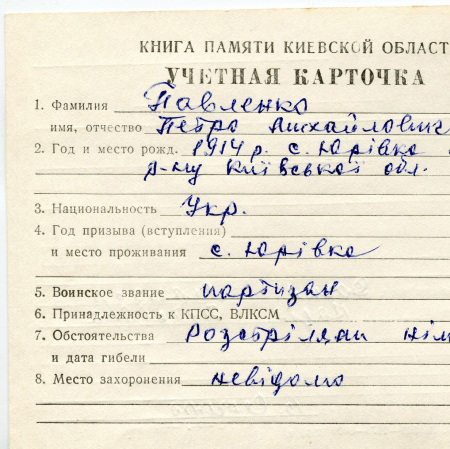 КНИГА ПАМЯТИ КИЕВСКОЙ ОБЛАСТ
УЧЕТНАЯ КАРТОЧКА
1. Фамилия Павленко
имя, отчество Петро Михайлович
2. Год и место рожд. 1914 р. с. Юрівка
р-ну Київської обл.
3. Национальность Укр.
4. Год призыва (вступления)
и место проживания с. Юрівка
5. Воинское звание партизан
6. Принадлежность к КПСС, ВЛКСМ
7. Обстоятельства Розстрілян нім
и дата гибели
8. Место захоронения невідомо